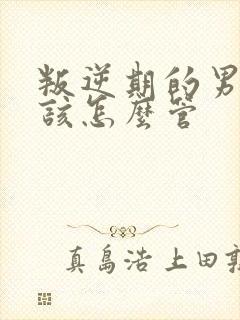 叛逆期的男
該怎麼管
真島浩 上田敦